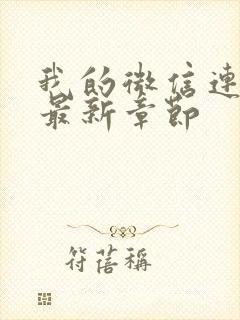 我的微信連
最新章節
符蓓稱